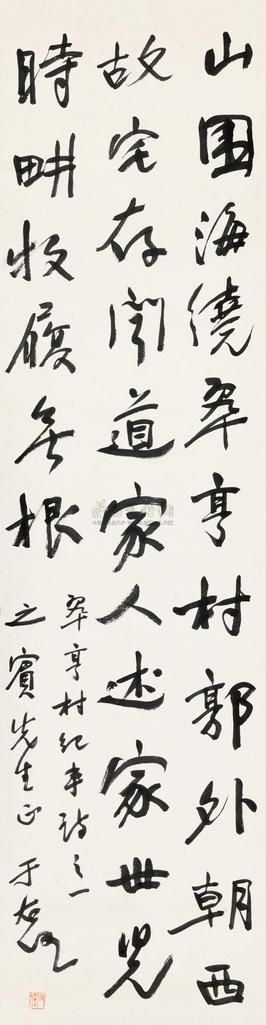 山围海绕翠亨村郭外朝西
故宅存闻道家人述家世儿
时畊牧履无根
翠亨村纪事诗之一
之宾先生正 于右任